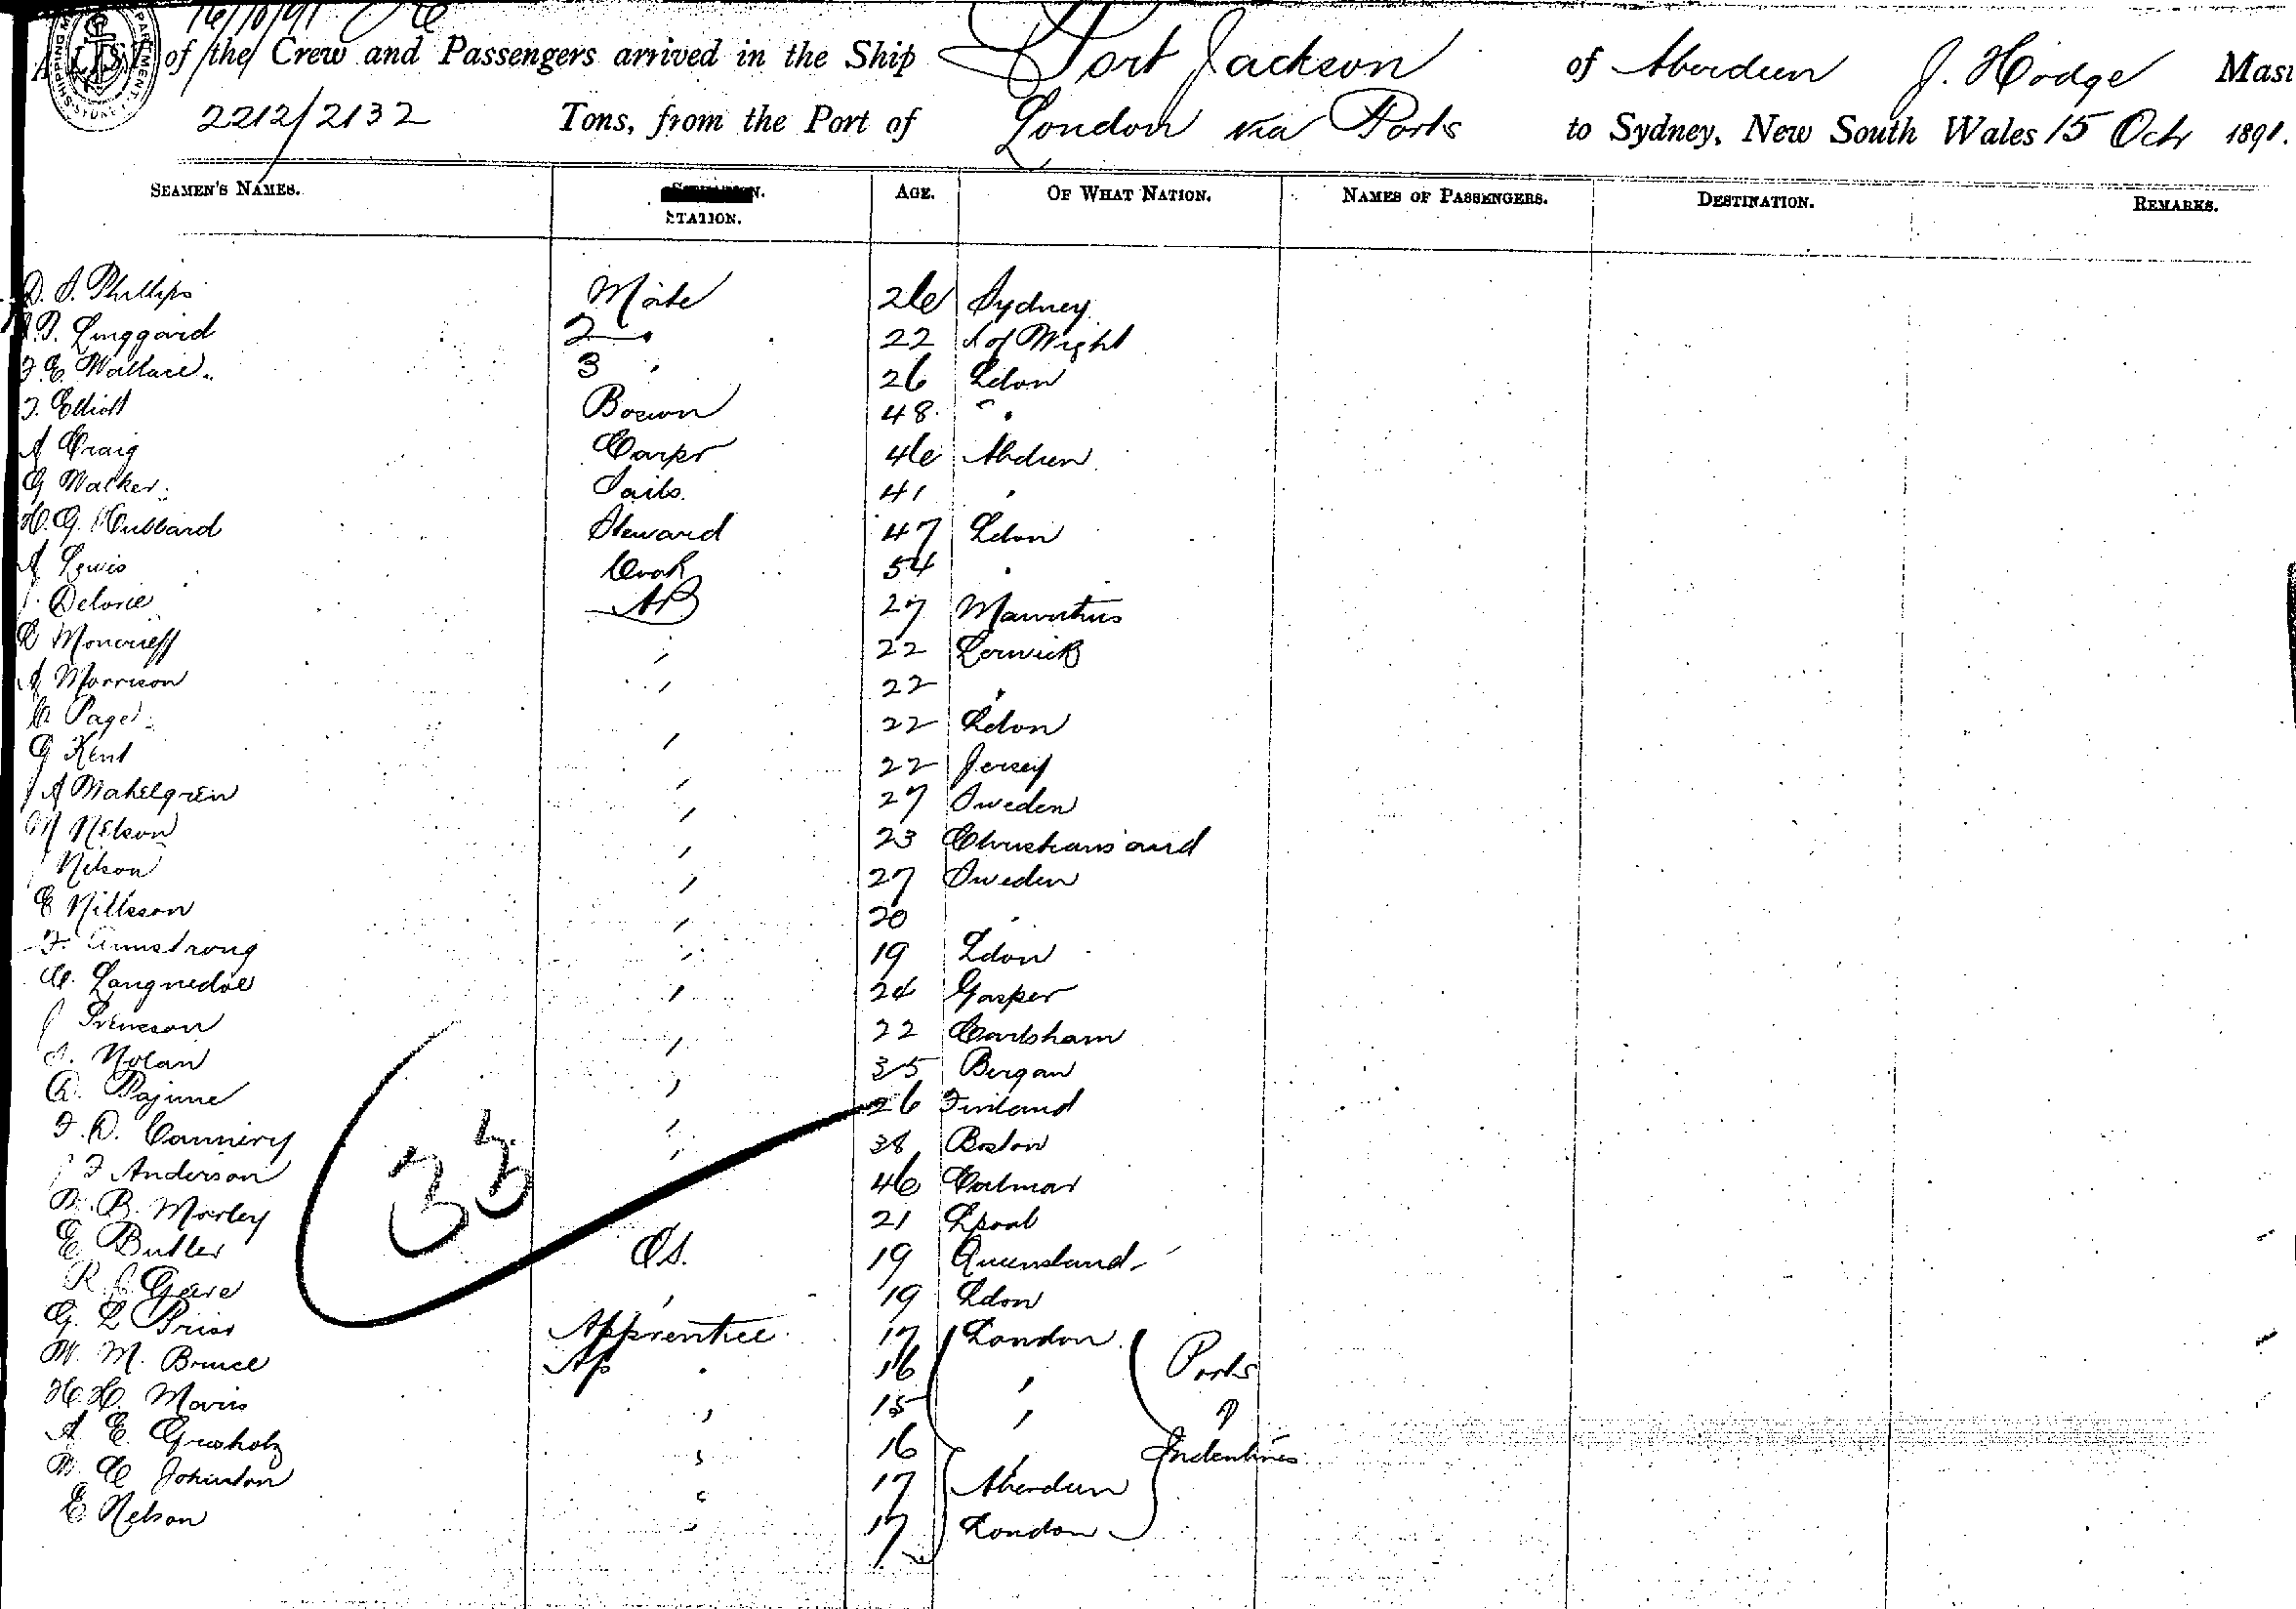 16/10/91
A LIST of the Crew and Passengers arrived in the Ship Port Jackson of Aberdeen J. Hodge Mast
2212/2132 Tons, from the Port of London via Ports to Sydney, New South Wales 15 Octr 1891.
SEAMEN'S NAMES. STATION. AGE. OF WHAT NATION. NAMES OF PASSENGERS. DESTINATION. REMARKS.
D. S. Phillips Mate 26 Sydney
Linggard 2 " 22 I of Wight
F. E. Wallace 3 " 26 Ldon
F. Elliott Bosun 48 "
A Craig Carpr 46 Abdeen
G Walker Sails 41 "
H. G. Hubbard Steward 47 Ldon
A Lewis Cook 54 "
Delorie AB 27 Mauritius
R Moncrieff " 22 Lerwick
A Morrison " 22 "
Page " 22 Ldon
G Kent " 22 Jersey
J A Mahelgren " 27 Sweden
M Nelson " 23 Christians and
J Nelson " 27 Sweden
E Nillsson " 20 "
F. Armstrong " 19 Ldon
Languedoc " 24 Gasper
J Svenson " 22 Carlsham
Nolan " 35 Bergan
A. Pajune " 26 Finland
F. D. Cannery " 38 Boston
J F Anderson " 46 Calmar
W. B. Morley 21 Lpool
E Butler OS. 19 Queensland
R. Geere " 19 Ldon
G. L Prior Apprentice 17 London
W. M. Bruce Ap " 16 " Ports
H. H. Morris " 15 " "
A. E. Grosholz " 16 " Indentures
W. C Johnston " 17 Aberdeen
E Nelson " 17 London
33